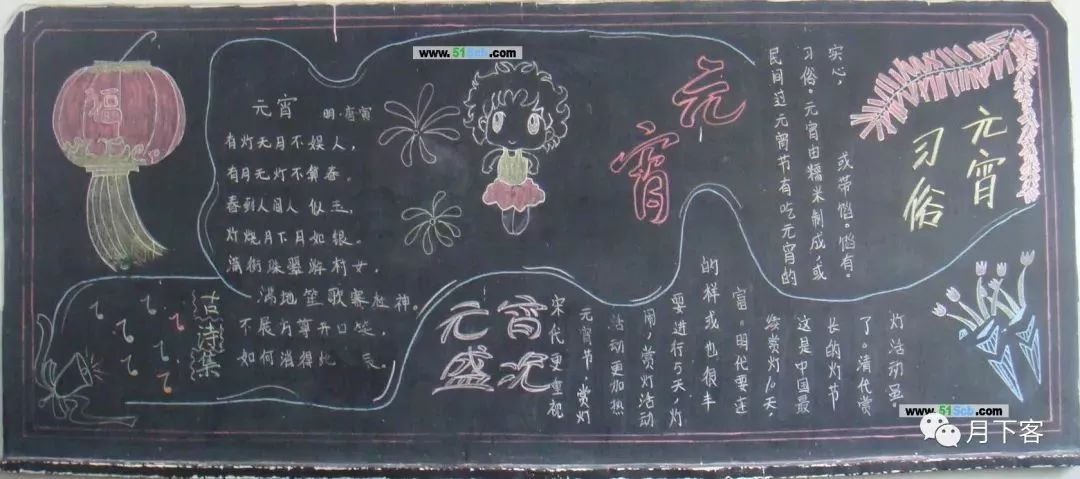 www.51Scb.com
福
元宵
明·唐寅
有灯无月不娱人，
有月无灯不算春。
春到人间人似玉，
灯烧月下月如银。
满街珠翠游村女，
满地笙歌赛社神。
不展芳尊开口笑，
如何消得此 辰。
古诗集
元宵
元宵习俗
民间过元宵节有吃元宵的
习俗。元宵由糯米制成，或
实心，或带馅。馅有
元宵盛况
宋代更重视
元宵节，赏灯
活动更加热
闹，赏灯活动
要进行5天，灯
的样式也很丰
富。明代要连
续赏灯10天，
这是中国最
长的灯节
了。清代赏
灯活动虽。
www.51Scb.com
月下客